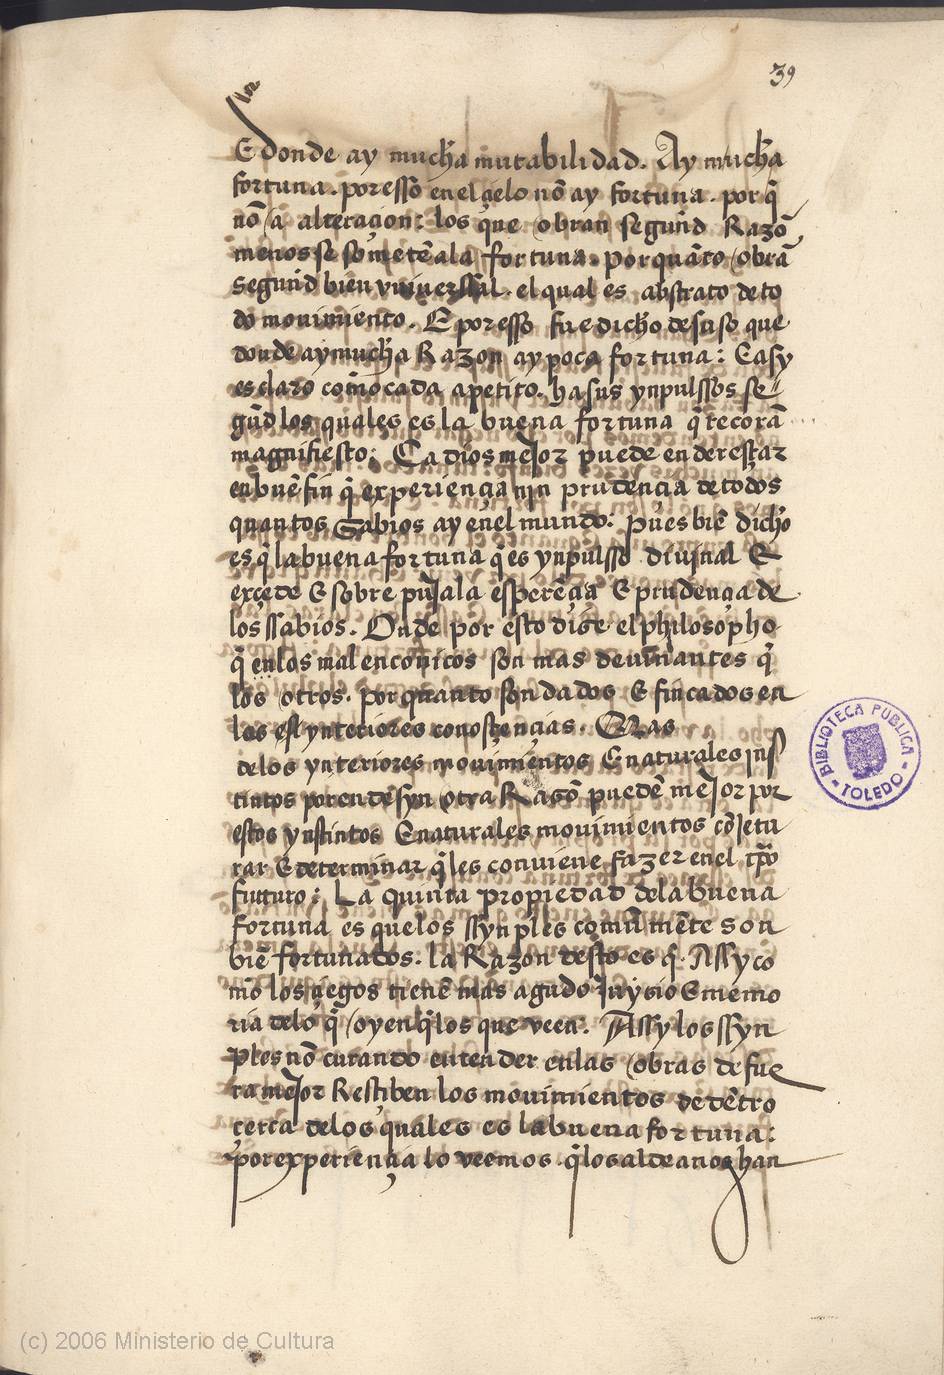 39
E donde ay mucha mutabilidad. Ay mucha
fortuna. por esso en el çielo nõ ay fortuna. por q̃
nõ a alteraçion: los que obran segund Razõ
menos se sometẽ ala fortuna. por quãto obrã
segund bien vniverssal. el qual es abstrato de to
do movimiento. E por esso fue dicho de suso que
donde ay mucha Razon ay poca fortuna: E asy
es claro com̃o cada apetito. ha sus ynpulssos se
gũd los quales es la buena fortuna q̃
magnifiesto: Ca dios mejor puede enderesçar
en buẽ fin q̃ experiençia nin prudençia de todos
quantos sabios ay enel mundo: pues biẽ dicho
es q̃ la buena fortuna q̃ es ynpulsso divjnal E
exçede E sobre pũja la esperẽçia E prudençia de
los ssabios. Onde por esto dise el philosopho
q̃ en los malenconicos son mas devinantes q̃
los otros. por quanto son dados E fincados en
las ynteriores conosçencias. Mas
delos ynteriores movimientos E naturales jns
tintos por ende syn otra Rasõ puedẽ mejor por
estos ynstintos E naturales movimientos cõjetu
rar E determinar q̃ les conviene fazer enel tp̃o
futturo: La quinta propiedad dela buena
fortuna es que los ssynples comũ mẽte son
biẽ fortunados. la Razon desto es q̃. Assy co
mo los çiegos tienẽ mas agudo Juysio E memo
ria delo q̃ oyen q̃ los que veen. Assy los ssyn
ples nõ curando entender en las obras de fue
ra mejor Resçiben los movimientos de dẽtro
cerca delos quales es la buena fortuna:
por experiençia lo veemos. q̃ los aldeanos han
BIBLIOTECA PÚBLICA
TOLEDO
(c) 2006 Ministerio de Cultura